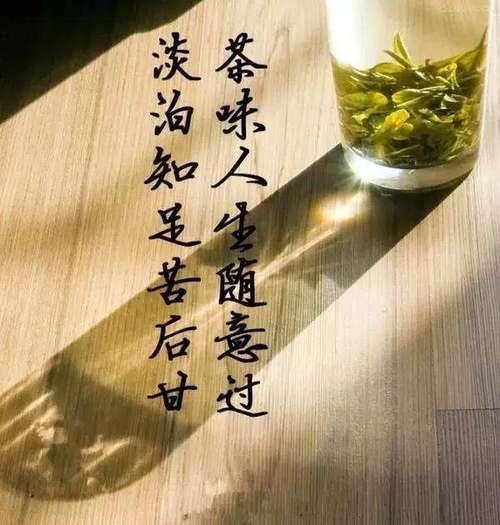 茶味人生随意过
淡泊知足苦后甘